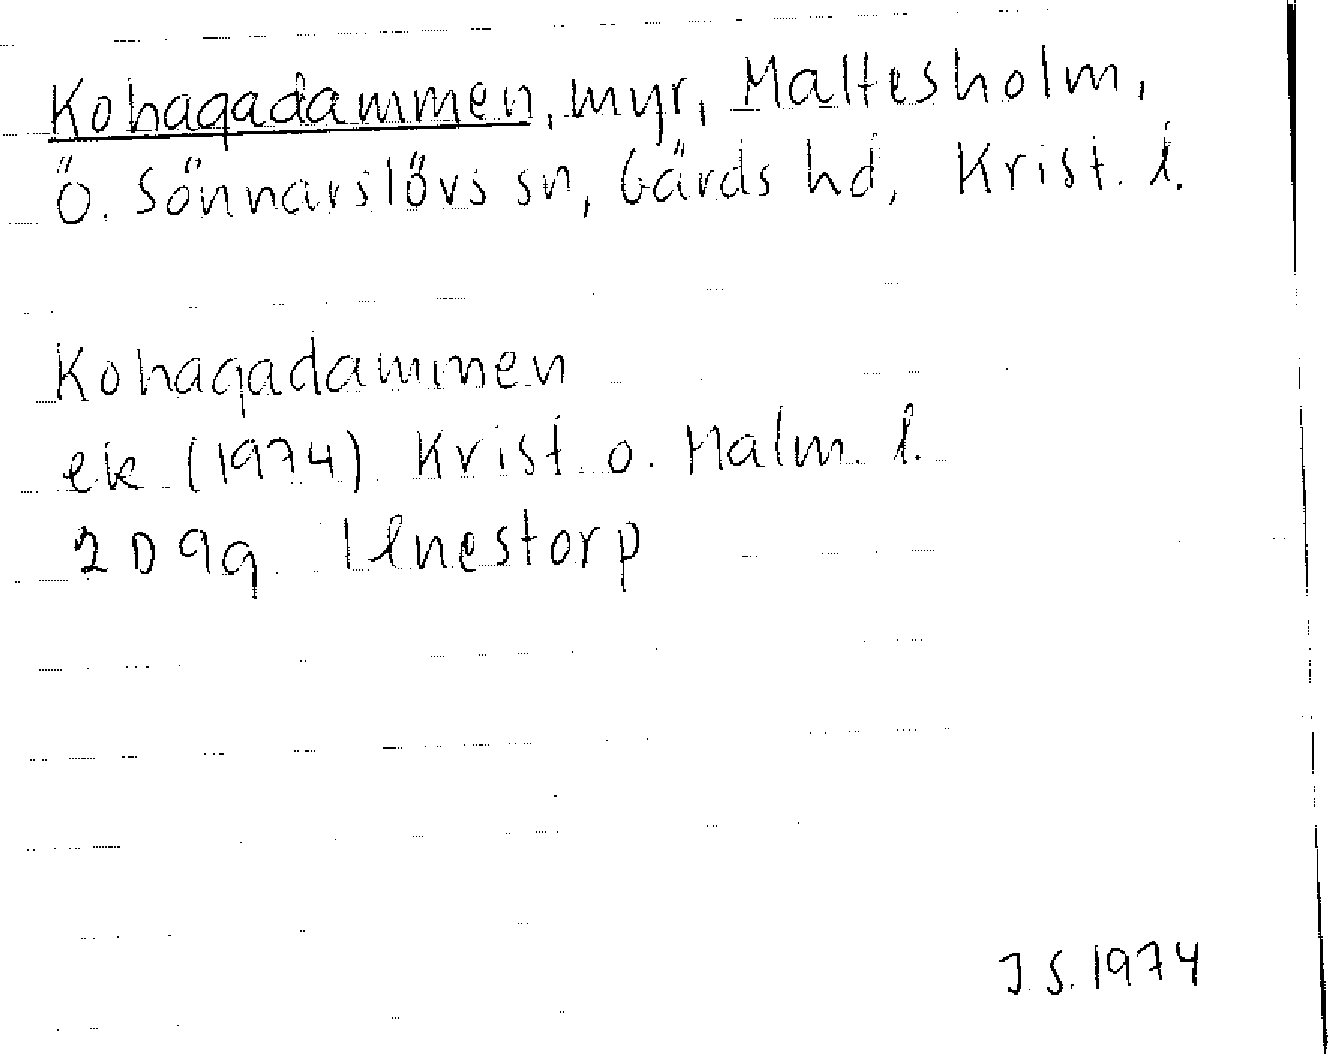 Kohagadammen, myr, Maltesholm,
Ö. Sönnarslövs sn, Gärds hd, Krist. l.
Kohagadammen
ek (1974) Krist. o. Malm. l.
2 D 9g Linnestorp
J.S. 1974